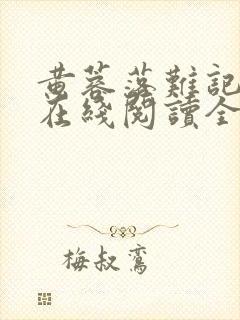 黄蓉落難記
在綫閱讀全
梅叔鸞